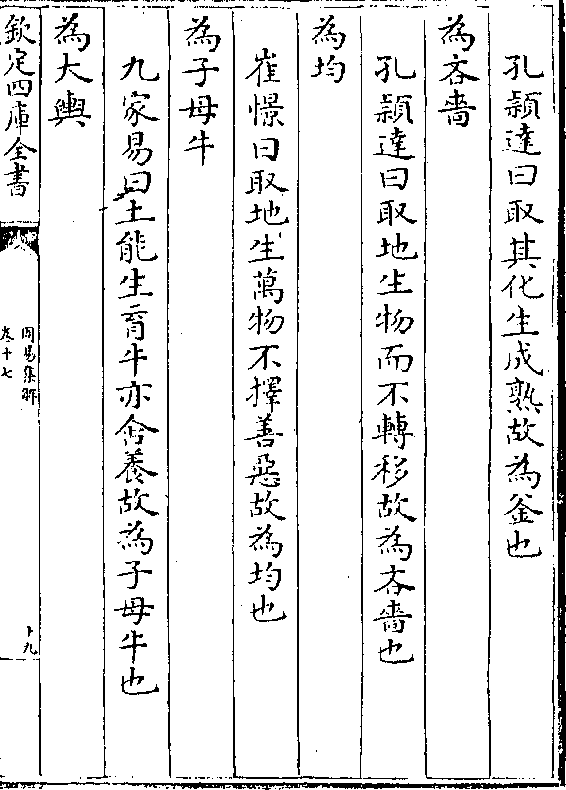 孔穎達曰取其化生成熟故為釜也
為吝嗇
孔穎達曰取地生物而不轉移故為吝嗇也
為均
崔憬曰取地生萬物不擇善惡故為均也
為子母牛
九家易曰土能生育牛亦含養故為子母牛也
為大輿
欽定四庫全書
周易集解
卷十七
十九